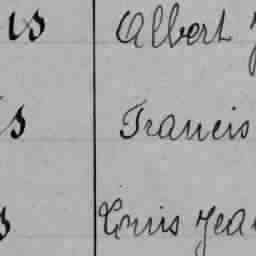 us Albert
is Francis
s Louis Jean